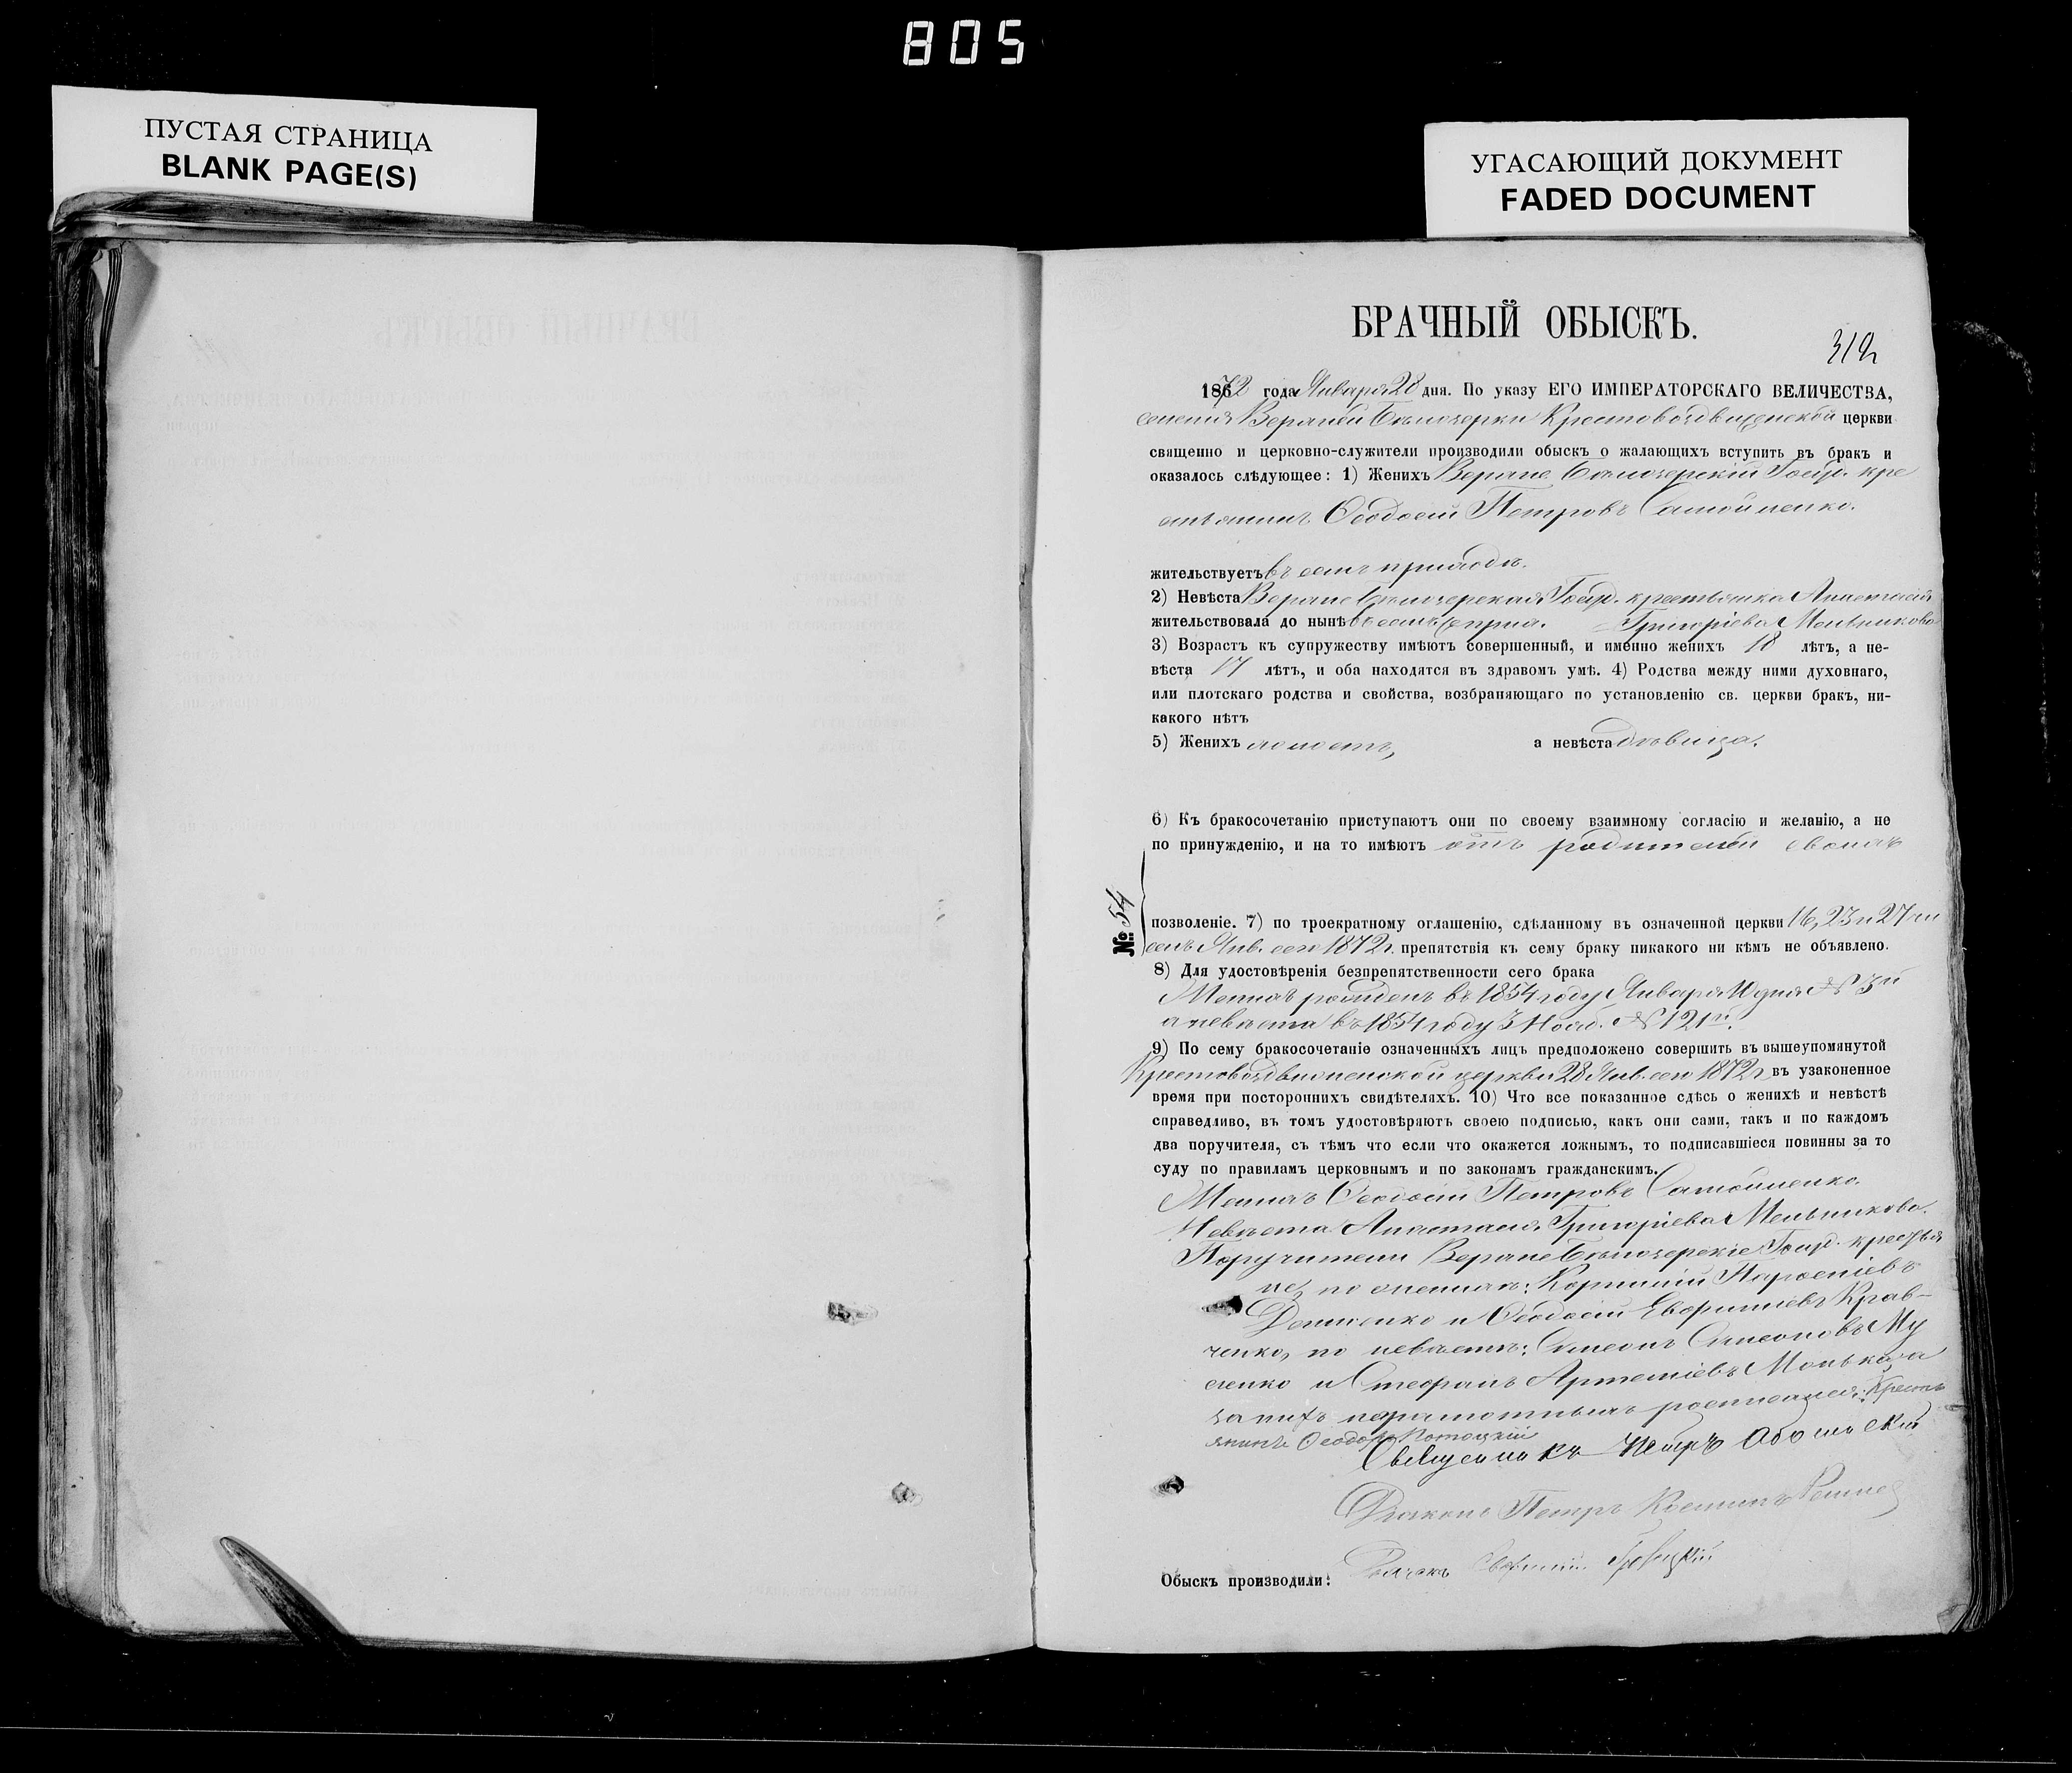 805
ПУСТАЯ СТРАНИЦА
BLANK PAGE(S)
УГАСАЮЩИЙ ДОКУМЕНТ
FADED DOCUMENT
БРАЧНЫЙ ОБЫСКЪ.
319
1872 года Января 28 дня. По указу ЕГО ИМПЕРАТОРСКАГО ВЕЛИЧЕСТВА,
селенія Верхней Бѣлозерки Крестовоздвиженской церкви
священно и церковно-служители производили обыскъ о жалающихъ вступить въ бракъ и
оказалось слѣдующее: 1) Женихъ Верхне Бѣлозерскій Госуд. кре
стьянинъ Ѳеодосій Петровъ Самойленко.
жительствуетъ въ семъ приходѣ.
2) Невѣста Верхне Бѣлозерская Госуд. крестьянка Анастасія
жительствовала до нынѣ въ семъ же прих. Григоріева Мельникова
3) Возрастъ къ супружеству имѣютъ совершенный, и именно женихъ 18 лѣтъ, а не-
вѣста 17 лѣтъ, и оба находятся въ здравомъ умѣ. 4) Родства между ними духовнаго,
или плотскаго родства и свойства, возбраняющаго по установленію св. церкви бракъ, ни-
какого нѣтъ
5) Женихъ холостъ, а невѣста дѣвица.
6) Къ бракосочетанію приступаютъ они по своему взаимному согласію и желанію, а не
по принужденію, и на то имѣютъ отъ родителей своихъ
№ 54
позволеніе. 7) по троекратному оглашенію, сдѣланному въ означенной церкви 16, 23 и 27 чи
селъ Янв. сего 1872 г. препятствія къ сему браку никакого ни кѣмъ не объявлено.
8) Для удостовѣренія безпрепятственности сего брака
Женихъ рожденъ въ 1854 году Января 10 дня № 3й
а невѣста въ 1854 году 3 Нояб. № 121й.
9) По сему бракосочетаніе означенныхъ лицъ предположено совершить въ вышеупомянутой
Крестовоздвиженской церкви 28 Янв. сего 1872 г. въ узаконенное
время при постороннихъ свидѣтеляхъ. 10) Что все показанное сдѣсь о женихѣ и невѣстѣ
справедливо, въ томъ удостовѣряютъ своею подписью, какъ они сами, такъ и по каждомъ
два поручителя, съ тѣмъ что если что окажется ложнымъ, то подписавшіеся повинны за то
суду по правиламъ церковнымъ и по законамъ гражданскимъ.
Женихъ Ѳеодосій Петровъ Самойленко.
Невѣста Анастасія Григоріева Мельникова.
Поручители Верхне Бѣлозерскіе Госуд. крестья
не, по женихѣ: Корнилій Парѳеніевъ
и Ѳеодосій Евфиміевъ Крав-
ченко, по невѣстѣ: Симеонъ Симеоновъ Му
сіенко и Стефанъ Артеміевъ а
за нихъ неграмотныхъ росписался: Кресть
янинъ Ѳеодоръ Потоцкій
Священникъ
Діаконъ Петръ
Обыскъ производили: